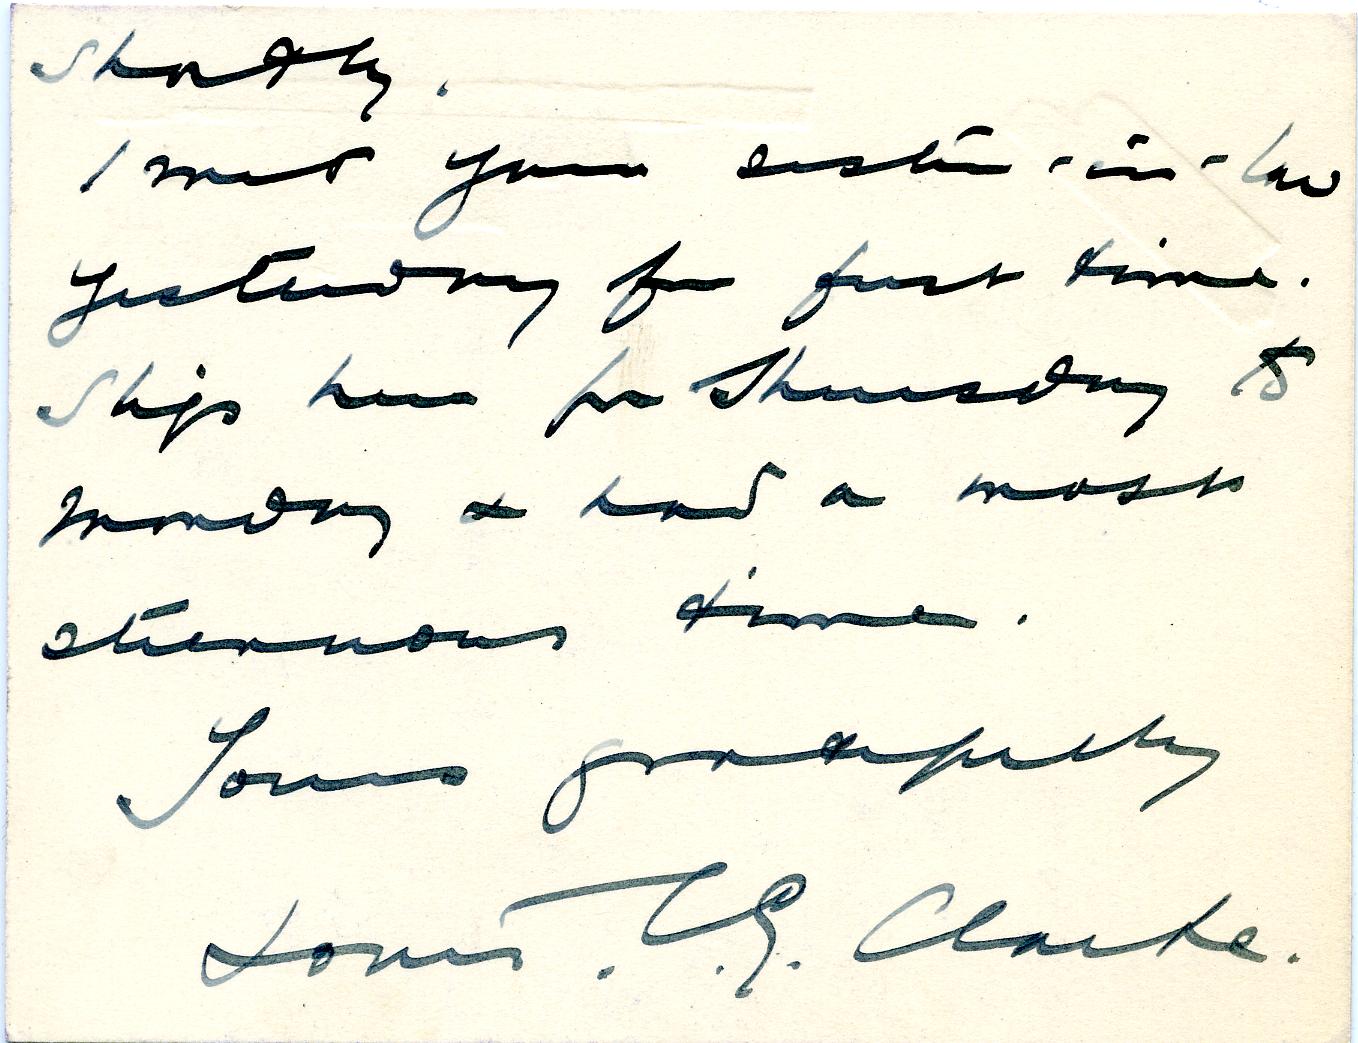 Shortly.
I met your sister-in-law
yesterday for first time.
Ships here for Thursday to
Monday & had a most
strenuous time.
Yours gratefully
Louis. C.G. Clarke.